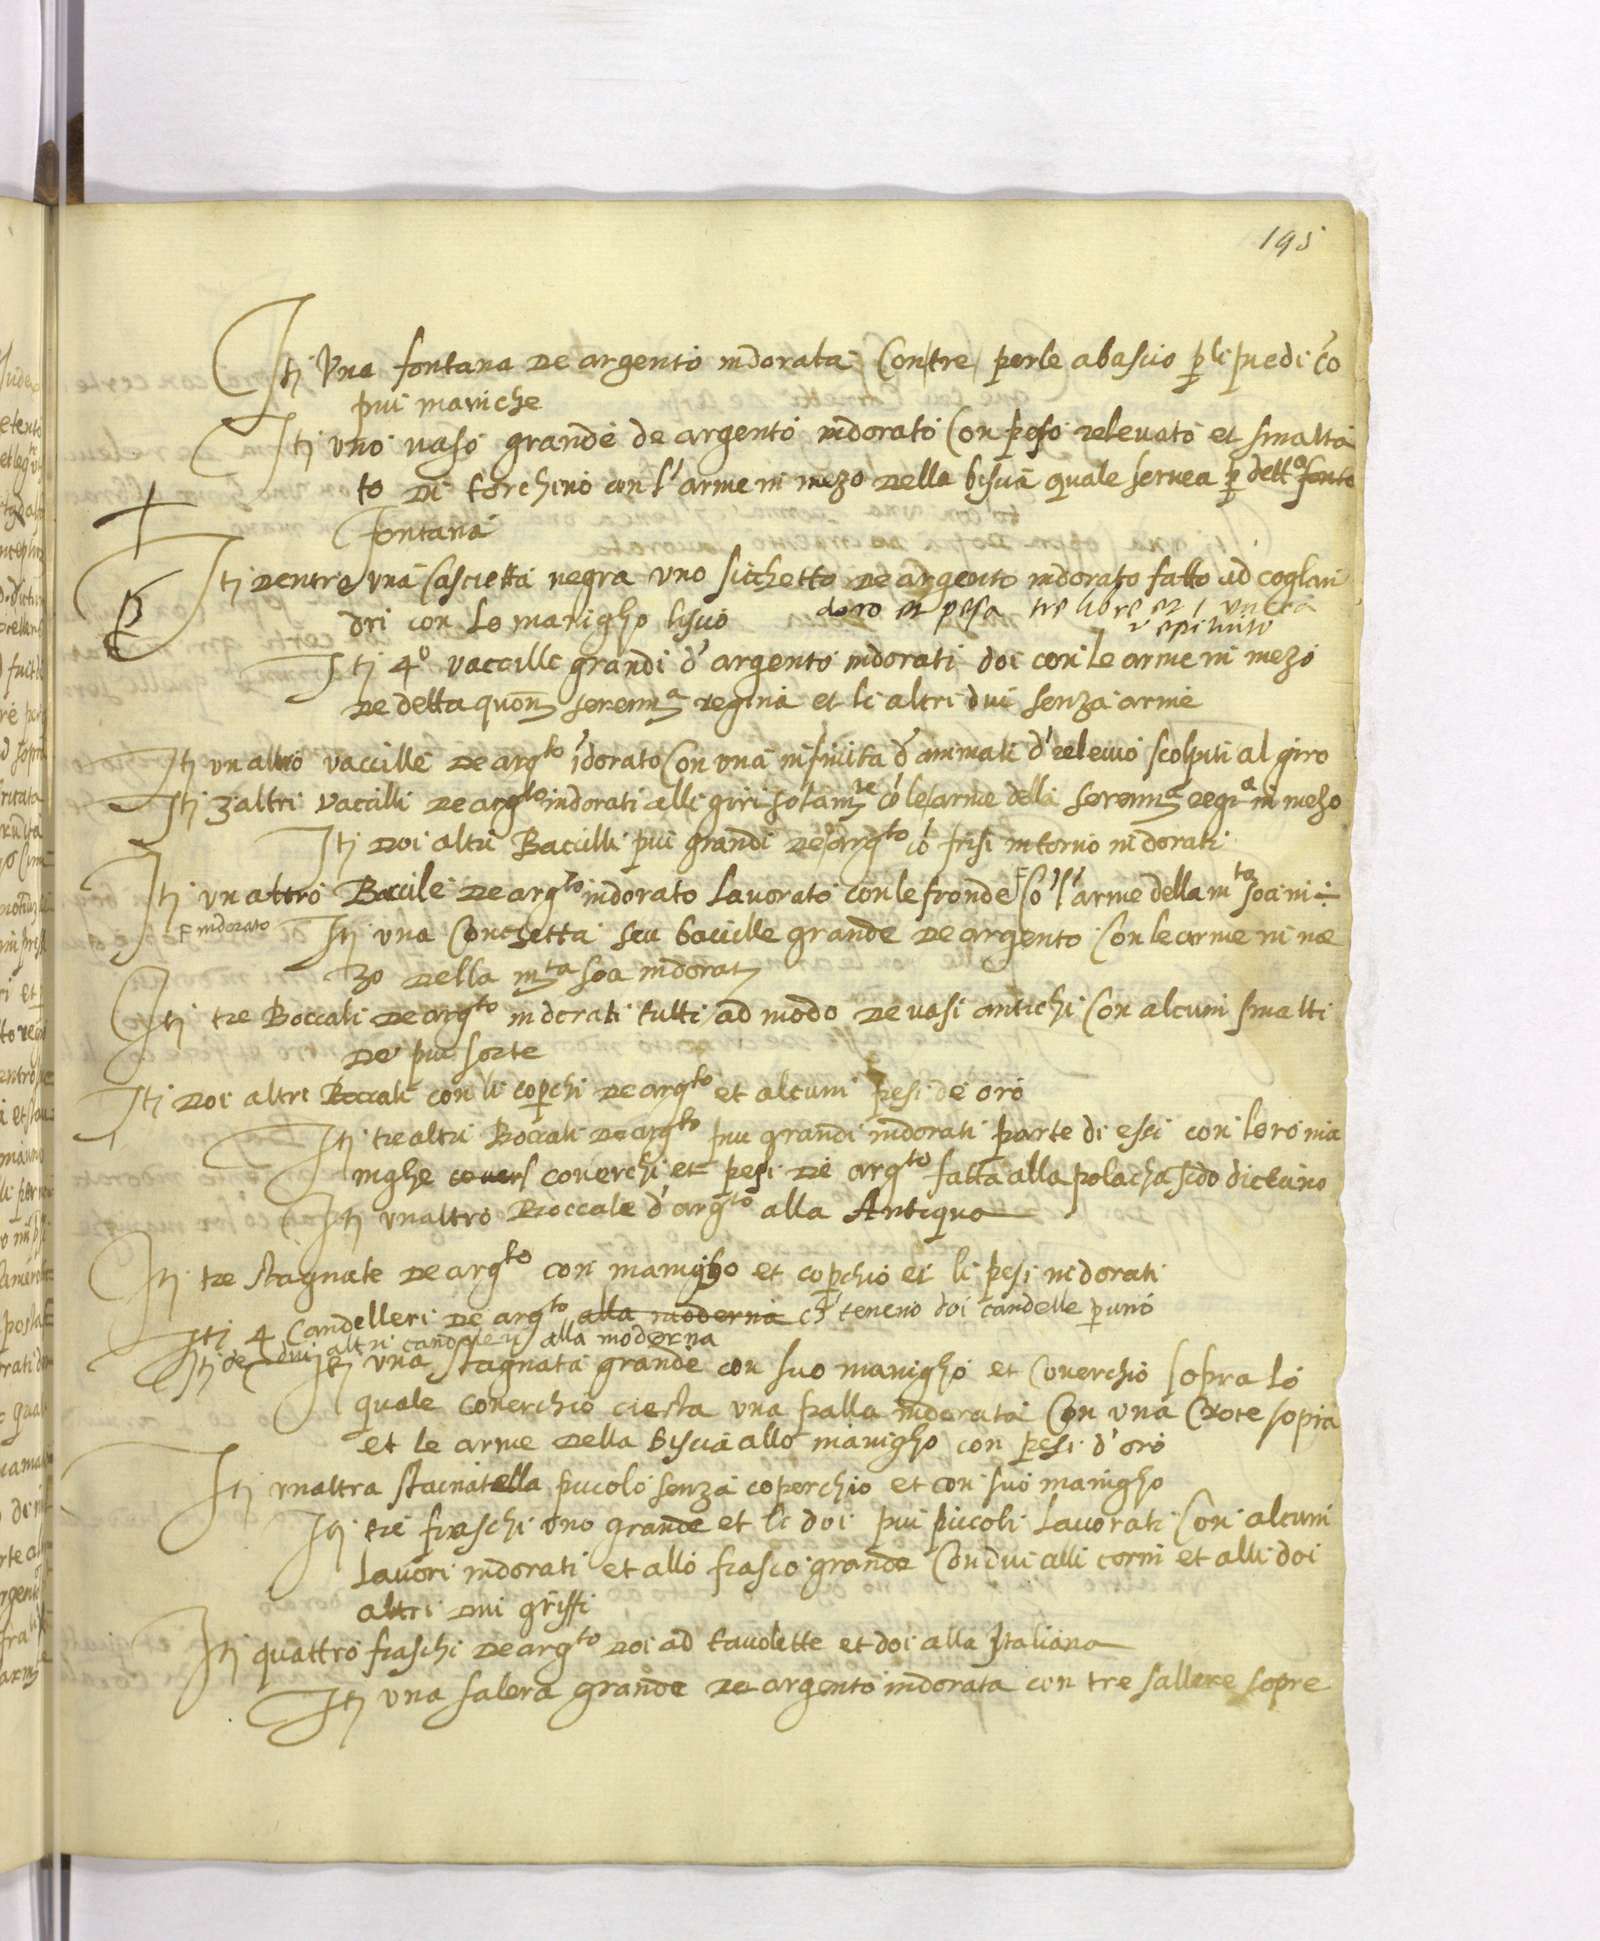 195
Itj Una fontana de argento indorata Con tre perle abascio p li piedi cō
piu maniche
Itj uno vaso grande de argento indorato Con peso relevato et smalta
to di torchino con l'arme in mezo della biscia quale servea p dettª fonta
fontana
Itj dentro una Cascietta negra uno sicchetto de argento indorato fatto ad coglan
dri con lo manigho liscio doro et pesa tre libre et 1 uncia
Itj 4º vaccille grandi d'argento indorati doi con le arme in mezo
de detta quonᵐ serenmª regina et li altri dui senza arme
Itj un altro vaccille de argto īdorato Con una infinita d'animali d'relevio scolpiti al giro
Itj 3 altri vaccilli de argto indorati alli giri solamte cō le arme della serenmª regiª in mezo
Itj doi altri Bacilli piu grandi de argto cō frisi intorno indorati
Itj un altro Baccile de argto indorato Lavorato con le fronde F Cō l'arme della mta soa in ÷
F indorato Itj una Conchetta seu baccille grande de argento Con le arme in me
zo della mta soa indorat
Itj tre Boccali de argto indorati tutti ad modo de vasi antichi Con alcuni smalti
de piu sorte
Itj doi altri Boccali con li copchi de argto et alcuni pesi de oro
Itj tre altri Boccali de argto piu grandi indorati parte di essi con loro ma
nighe covers coverchi et pesi de argto fatta alla polacha sido dictino
Itj un altro Boccale d'argto alla Antiqua
Itj tre stagnate de argto con manigho et copchio et li pesi indorati
Itj 4 Candelleri de argto alla moderna ch' teneno doi candelle p uno
Itj de dui altri candeleri alla moderna
Itj una stagnata grande con suo manigho et Coverchio sopra lo
quale coverchio ciesta una palla indorata Con una Croce sopra
et le arme della biscia allo manigho con pesi d'oro
Itj un altra stacnatella piccolo senza coperchio et con suo manigho
Itj tre fiaschi uno grande et li doi piu piccoli Lavorati Con alcuni
Lavori indorati et allo fiasco grande Con dui alli corni et alli doi
altri dui griffi
Itj quattro fiaschi de argto doi ad tavolette et doi alla Italiana
Itj una salera grande de argento indorata con tre sallere sopre